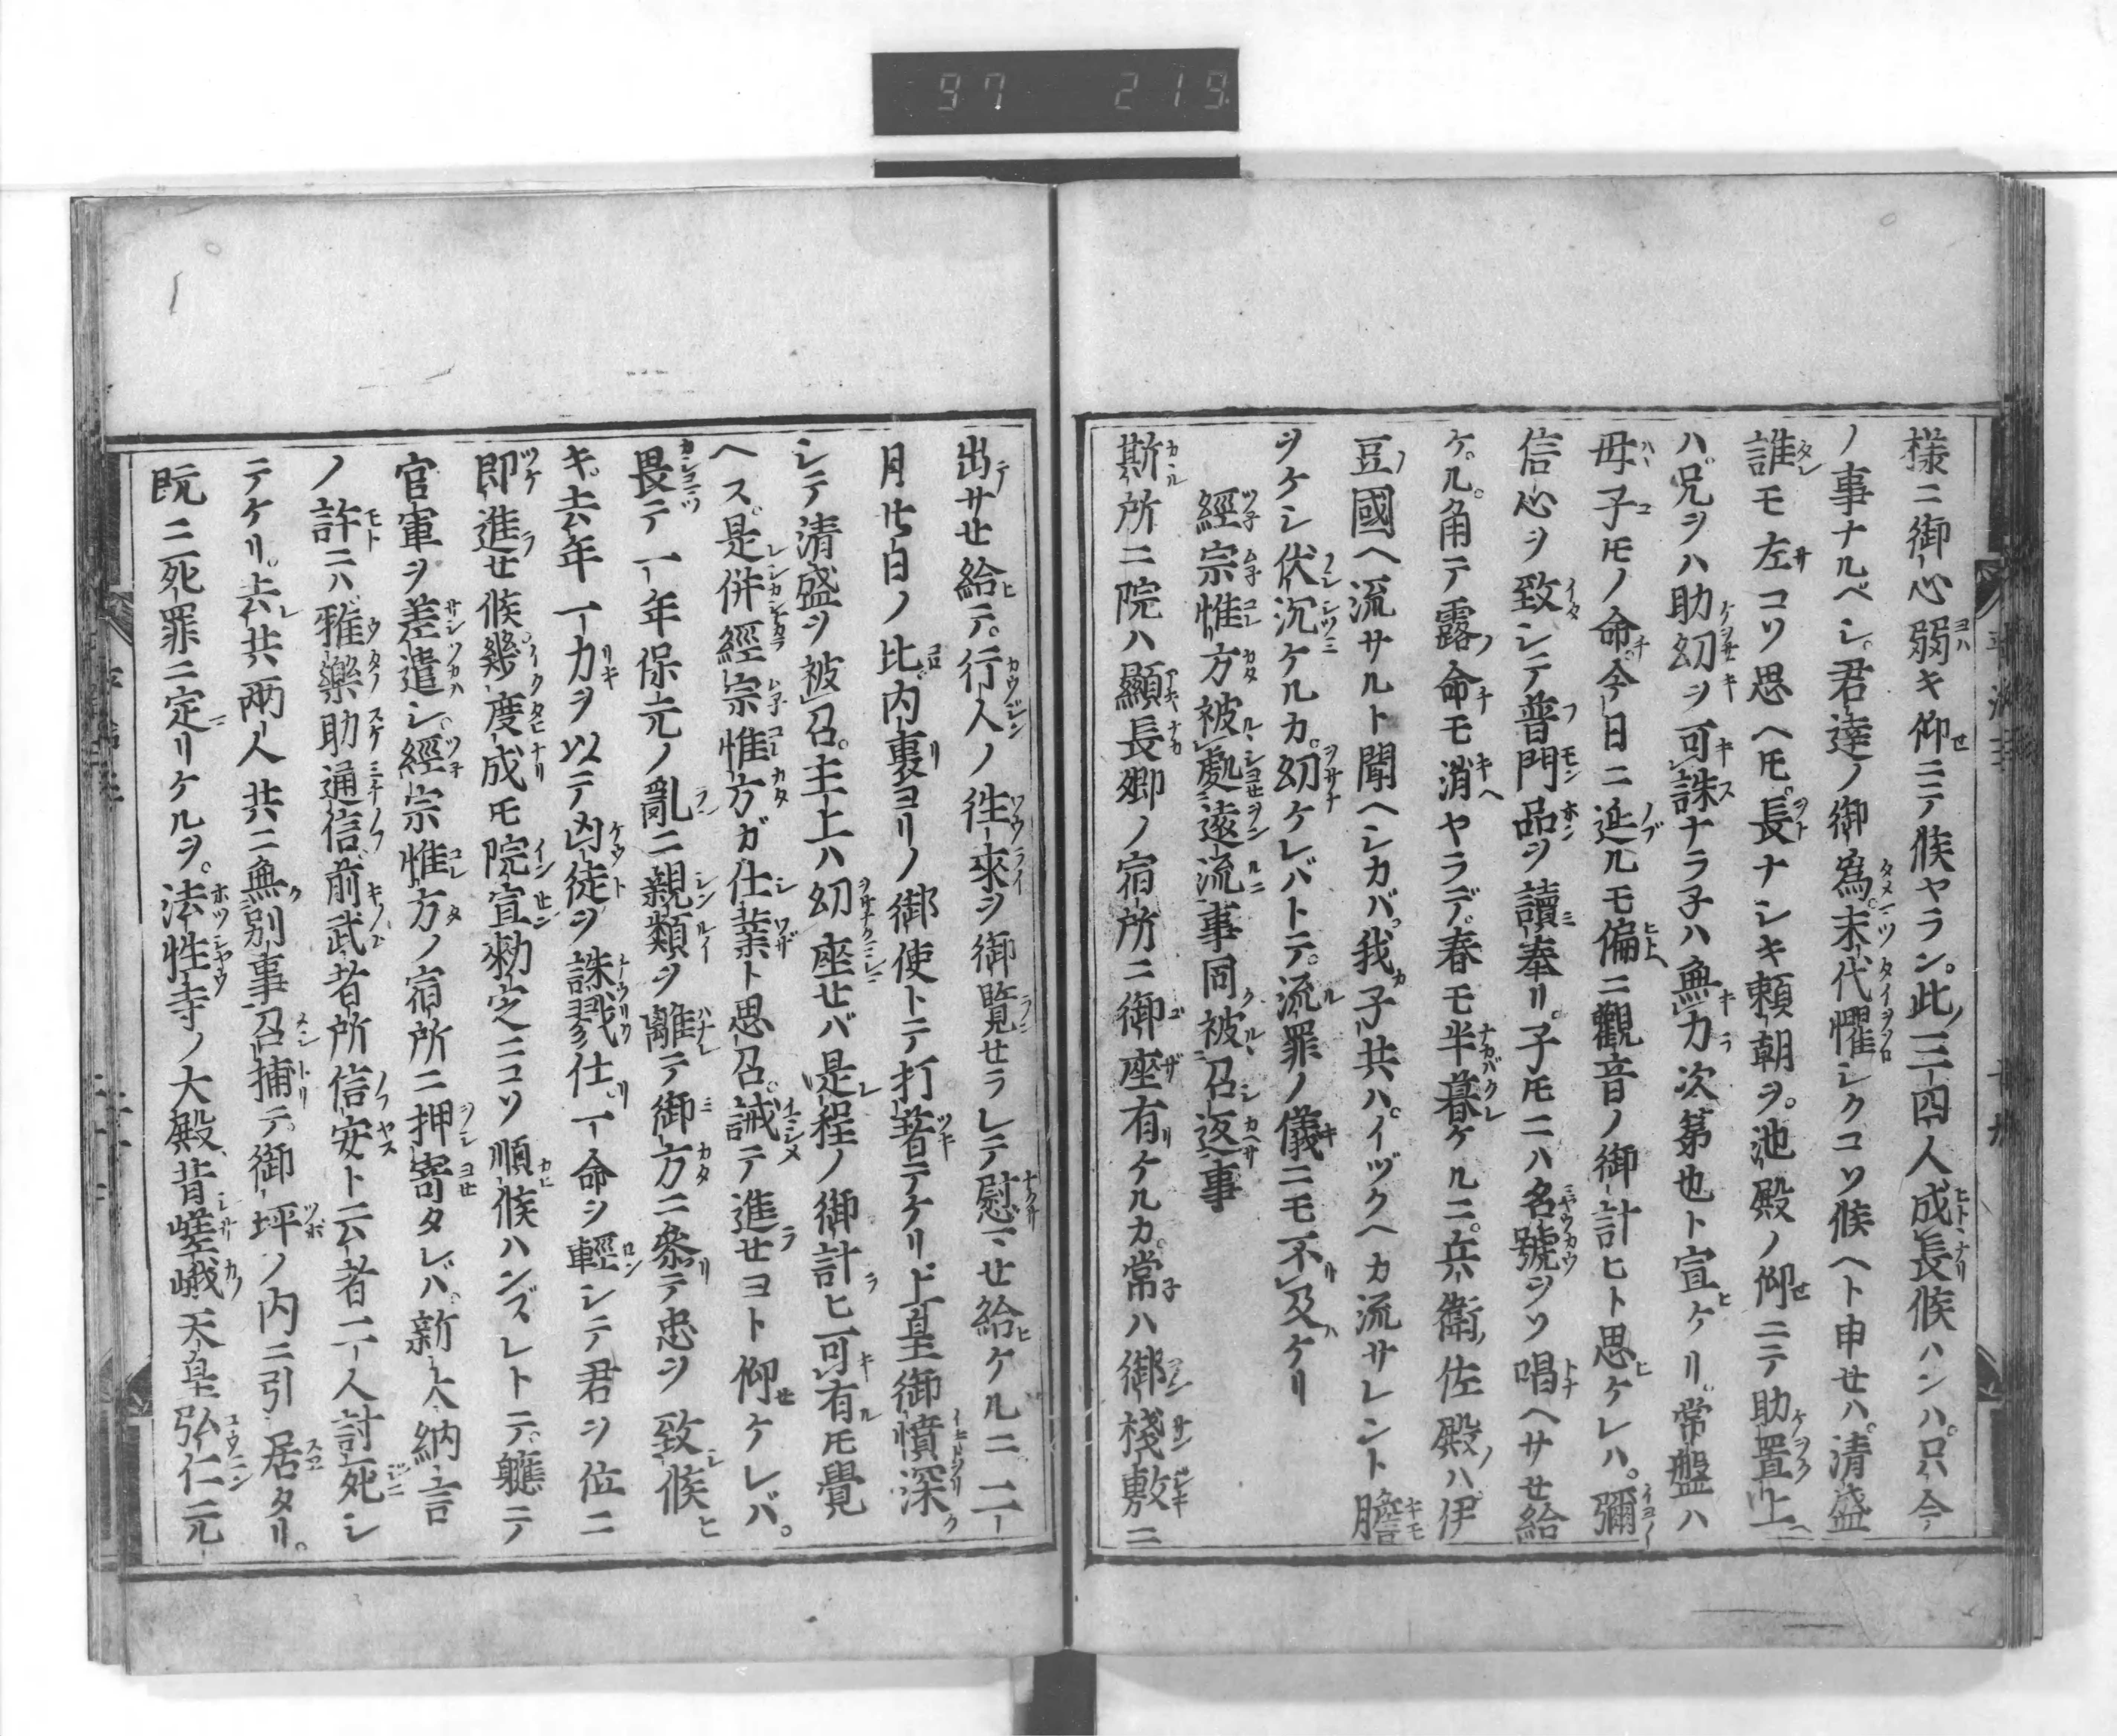 97 219
様ニ御心弱キ仰ニテ候ヤラン。此三四人成長候ハンハ。只今
ノ事ナルベシ。君達ノ御為。末代懼シクコソ候ヘト申セハ。清盛
誰モ左コソ思ヘ𪜈。長ナシキ頼朝ヲ。池殿ノ仰ニテ助置上
ハ。兄ヲハ助幼ヲ可誅ナラ子ハ無力次第也ト宣ケリ。常盤ハ
母子𪜈ノ命。今日ニ延ルモ偏ニ觀音ノ御計ヒト思ケレハ。彌
信心ヲ致シテ普門品ヲ讀奉リ。子𪜈ニハ名號ヲソ唱ヘサセ給
ケル。角テ露命モ消ヤラデ。春モ半暮ケルニ。兵衛佐殿ハ。伊
豆國ヘ流サルト聞ヘシカバ。我子共ハ。イヅクヘカ流サレント膽
ヲケシ伏沉ケルカ。幼ケレバトテ。流罪ノ儀ニモ不及ケリ
經宗惟方被處遠流事同被召返事
斯所ニ院ハ顯長卿ノ宿所ニ御座有ケルカ。常ハ御棧敷ニ
出サセ給テ。行人ノ徃來ヲ御覽セラレテ慰マセ給ケルニ。二
月廿日ノ比。内裏ヨリノ御使トテ打著テケリ。上皇御憤深
シテ清盛ヲ被召。主上ハ幼座セバ是程ノ御計ヒ可有𪜈覺
ヘス。是併經宗惟方ガ仕業ト思召。誡テ進セヨト仰ケレバ。
畏テ一年保元ノ亂ニ親類ヲ離テ御方ニ參テ忠ヲ致候
キ。去年一力ヲ以テ凶徒ヲ誅戮仕リ一命ヲ輕シテ君ヲ位ニ
即進セ候。幾度成𪜈院宣勅定ニコソ順候ハンズレトテ。軈テ
官軍ヲ差遣シ。經宗惟方ノ宿所ニ押寄タレバ。新大納言
ノ許ニハ雅樂助通信。前武者所信安ト云者二人討死シ
テケリ。去共兩人共ニ無別事召捕テ。御坪ノ内ニ引居タリ。
既ニ死罪ニ定リケルヲ。法性寺ノ大殿。昔嵯峨天皇弘仁元